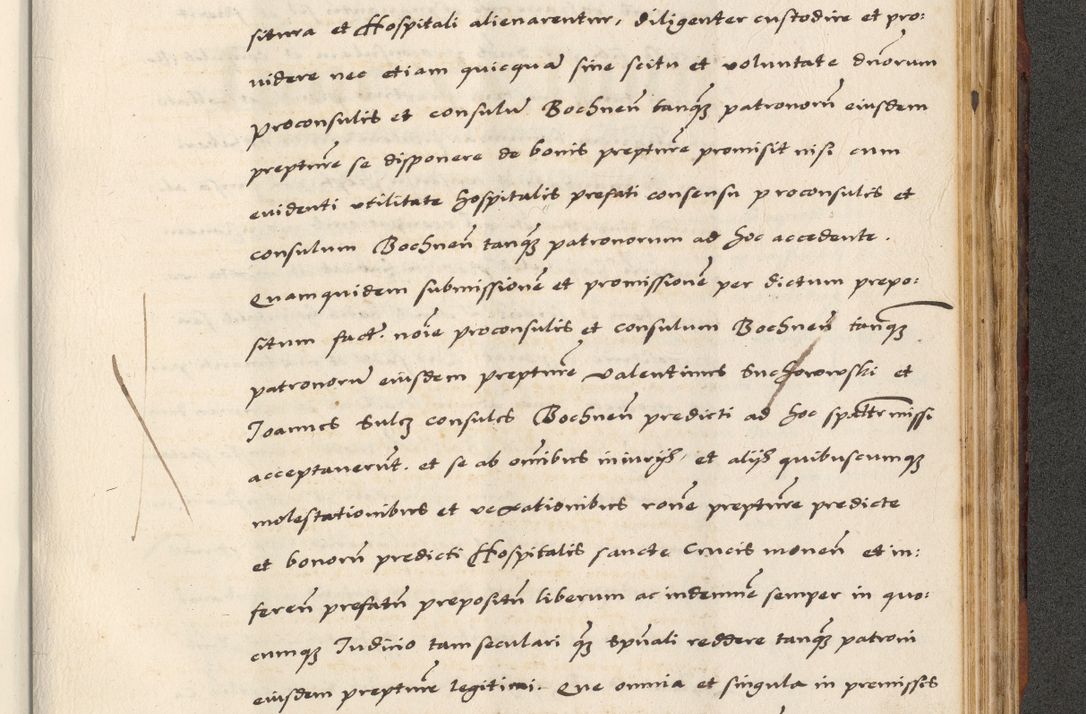 situra et Hospitali alienarentur, diligenter custodire et pro:
videre nec etiam quicquā sine scitu et voluntate dnōrum
proconsulis et consulū Bochneñ tanqȝ patronorū eiusdem
preptūre se disponere de bonis preptūre promisit nisi cum
evidenti utilitate hospitalis prefati consensu proconsulis et
consulum Bochneñ tanqȝ patronorum ad hoc accedente.
Quamquidem submissionē et promissionē per dictum prepo:
situm fact. noīe proconsulis et consulum Bochneñ tanqȝ
patronorū eiusdem preptūre Valentinus Suchorowski et
Joannes Sulcȝ consules Bochneñ predicti ad hoc spālr missi
acceptaverūt. et se ab omībus iniurijs, et alijs quibuscumqȝ
molestationibus et vexationibus rōne preptūre predicte
et bonorū predicti Hospitalis sancte Crucis moveñ et in:
fereñ prefatū prepositū liberum ac indemnē semper in quo:
cumqȝ Iudicio tam seculari qȝ spūali reddere tanqȝ patroni
eiusdem preptūre legitimi. Que omnia et singula in premissis